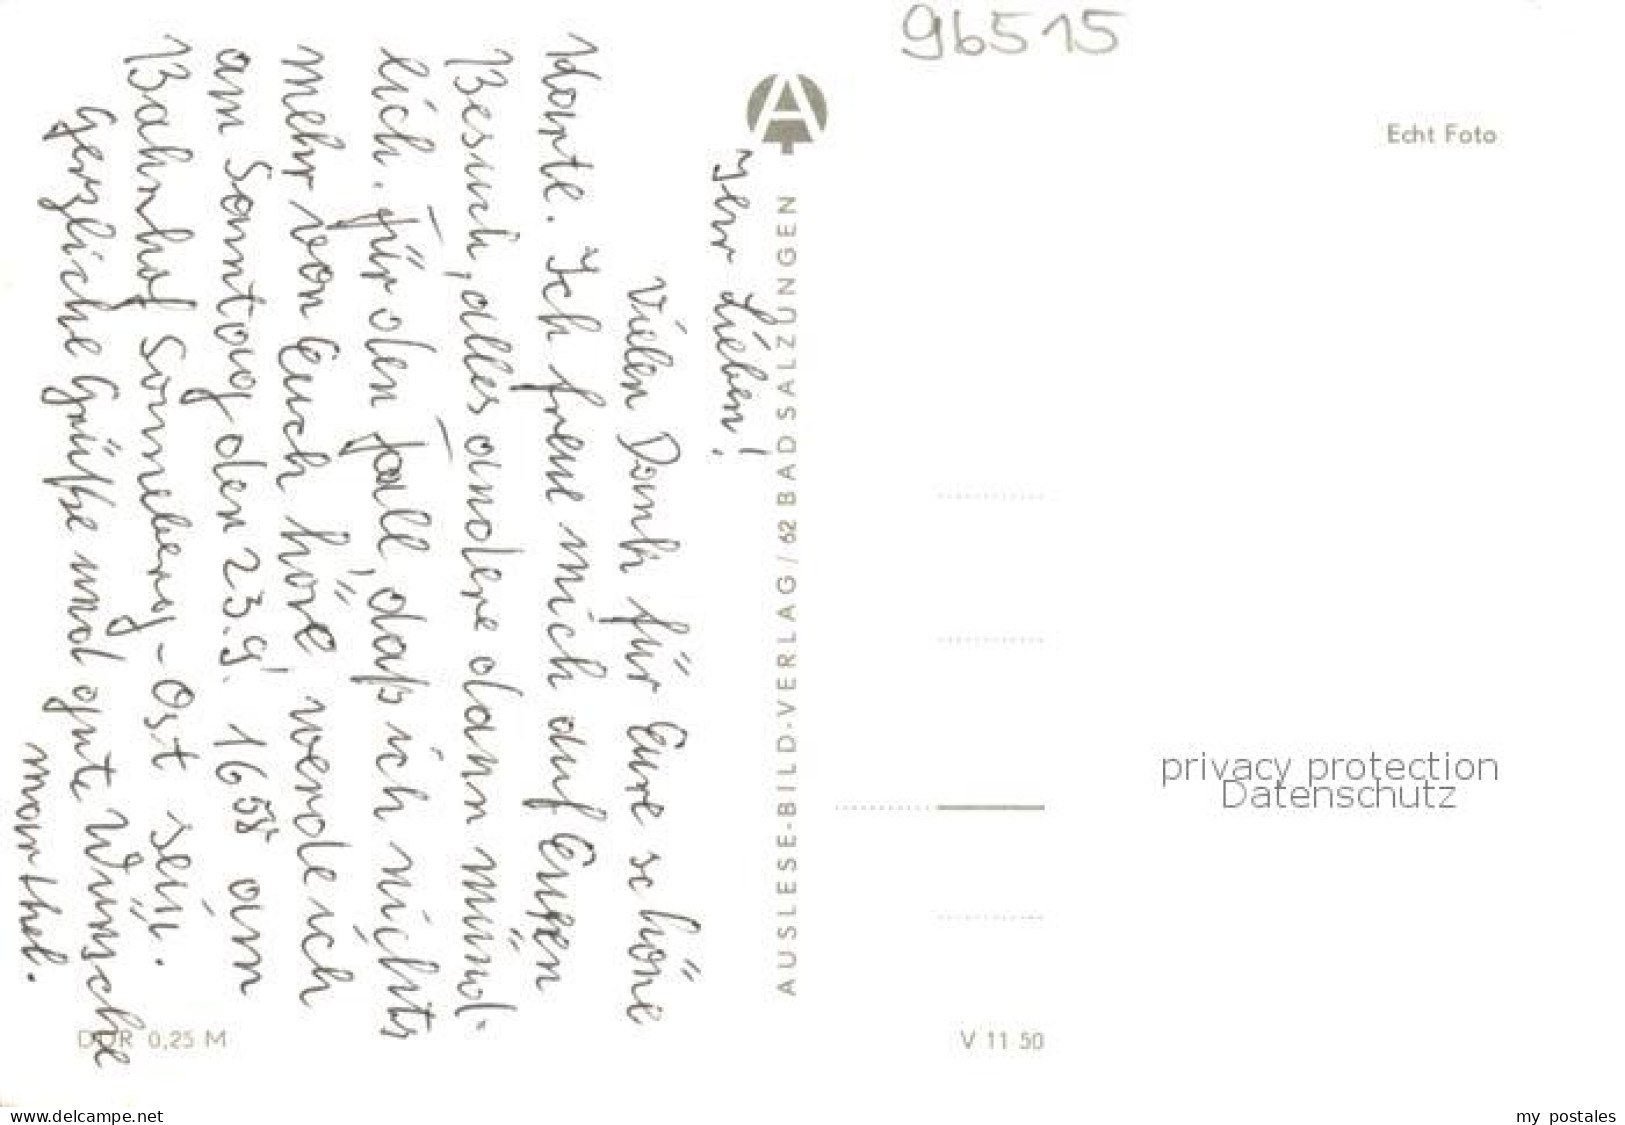 96515
Echt Foto
Ihr Lieben!
Vielen Dank für Eure schöne
Karte. Ich freue mich auf Euren
Besuch, alles andere dann münd-
lich. Für den Fall, daß ich nichts
mehr von Euch höre, werde ich
am Sonntag den 23.9. 16⁵⁸ am
Bahnhof Sonneberg-Ost sein.
Herzliche Grüße und gute Wünsche
AUSLESE-BILD-VERLAG/62 BAD SALZUNGEN
privacy protection
Datenschutz
DDR 0,25 M
V 11 50
www.delcampe.net
my postales